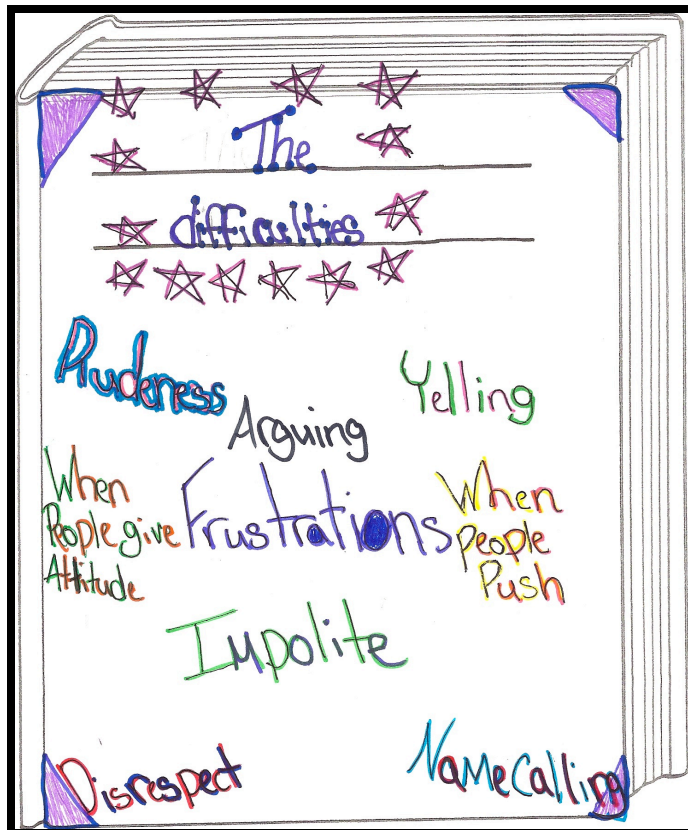 The
difficulties
Rudeness
Yelling
Arguing
When
People give
Attitude
Frustrations
When
People
Push
Impolite
Disrespect
Name Calling